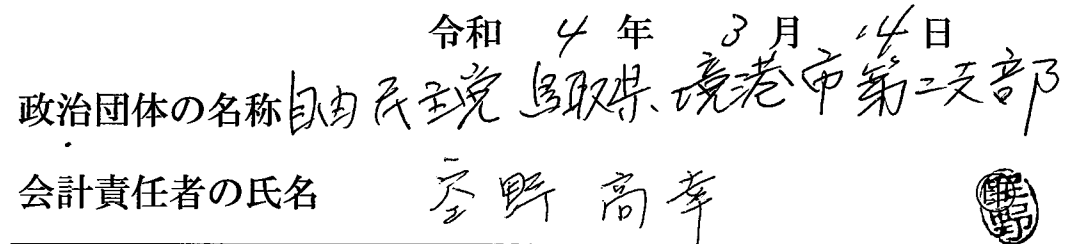 令和 4 年 3 月 14 日
政治団体の名称 自由民主党鳥取県境港市第二支部
会計責任者の氏名 空野 高幸
空野